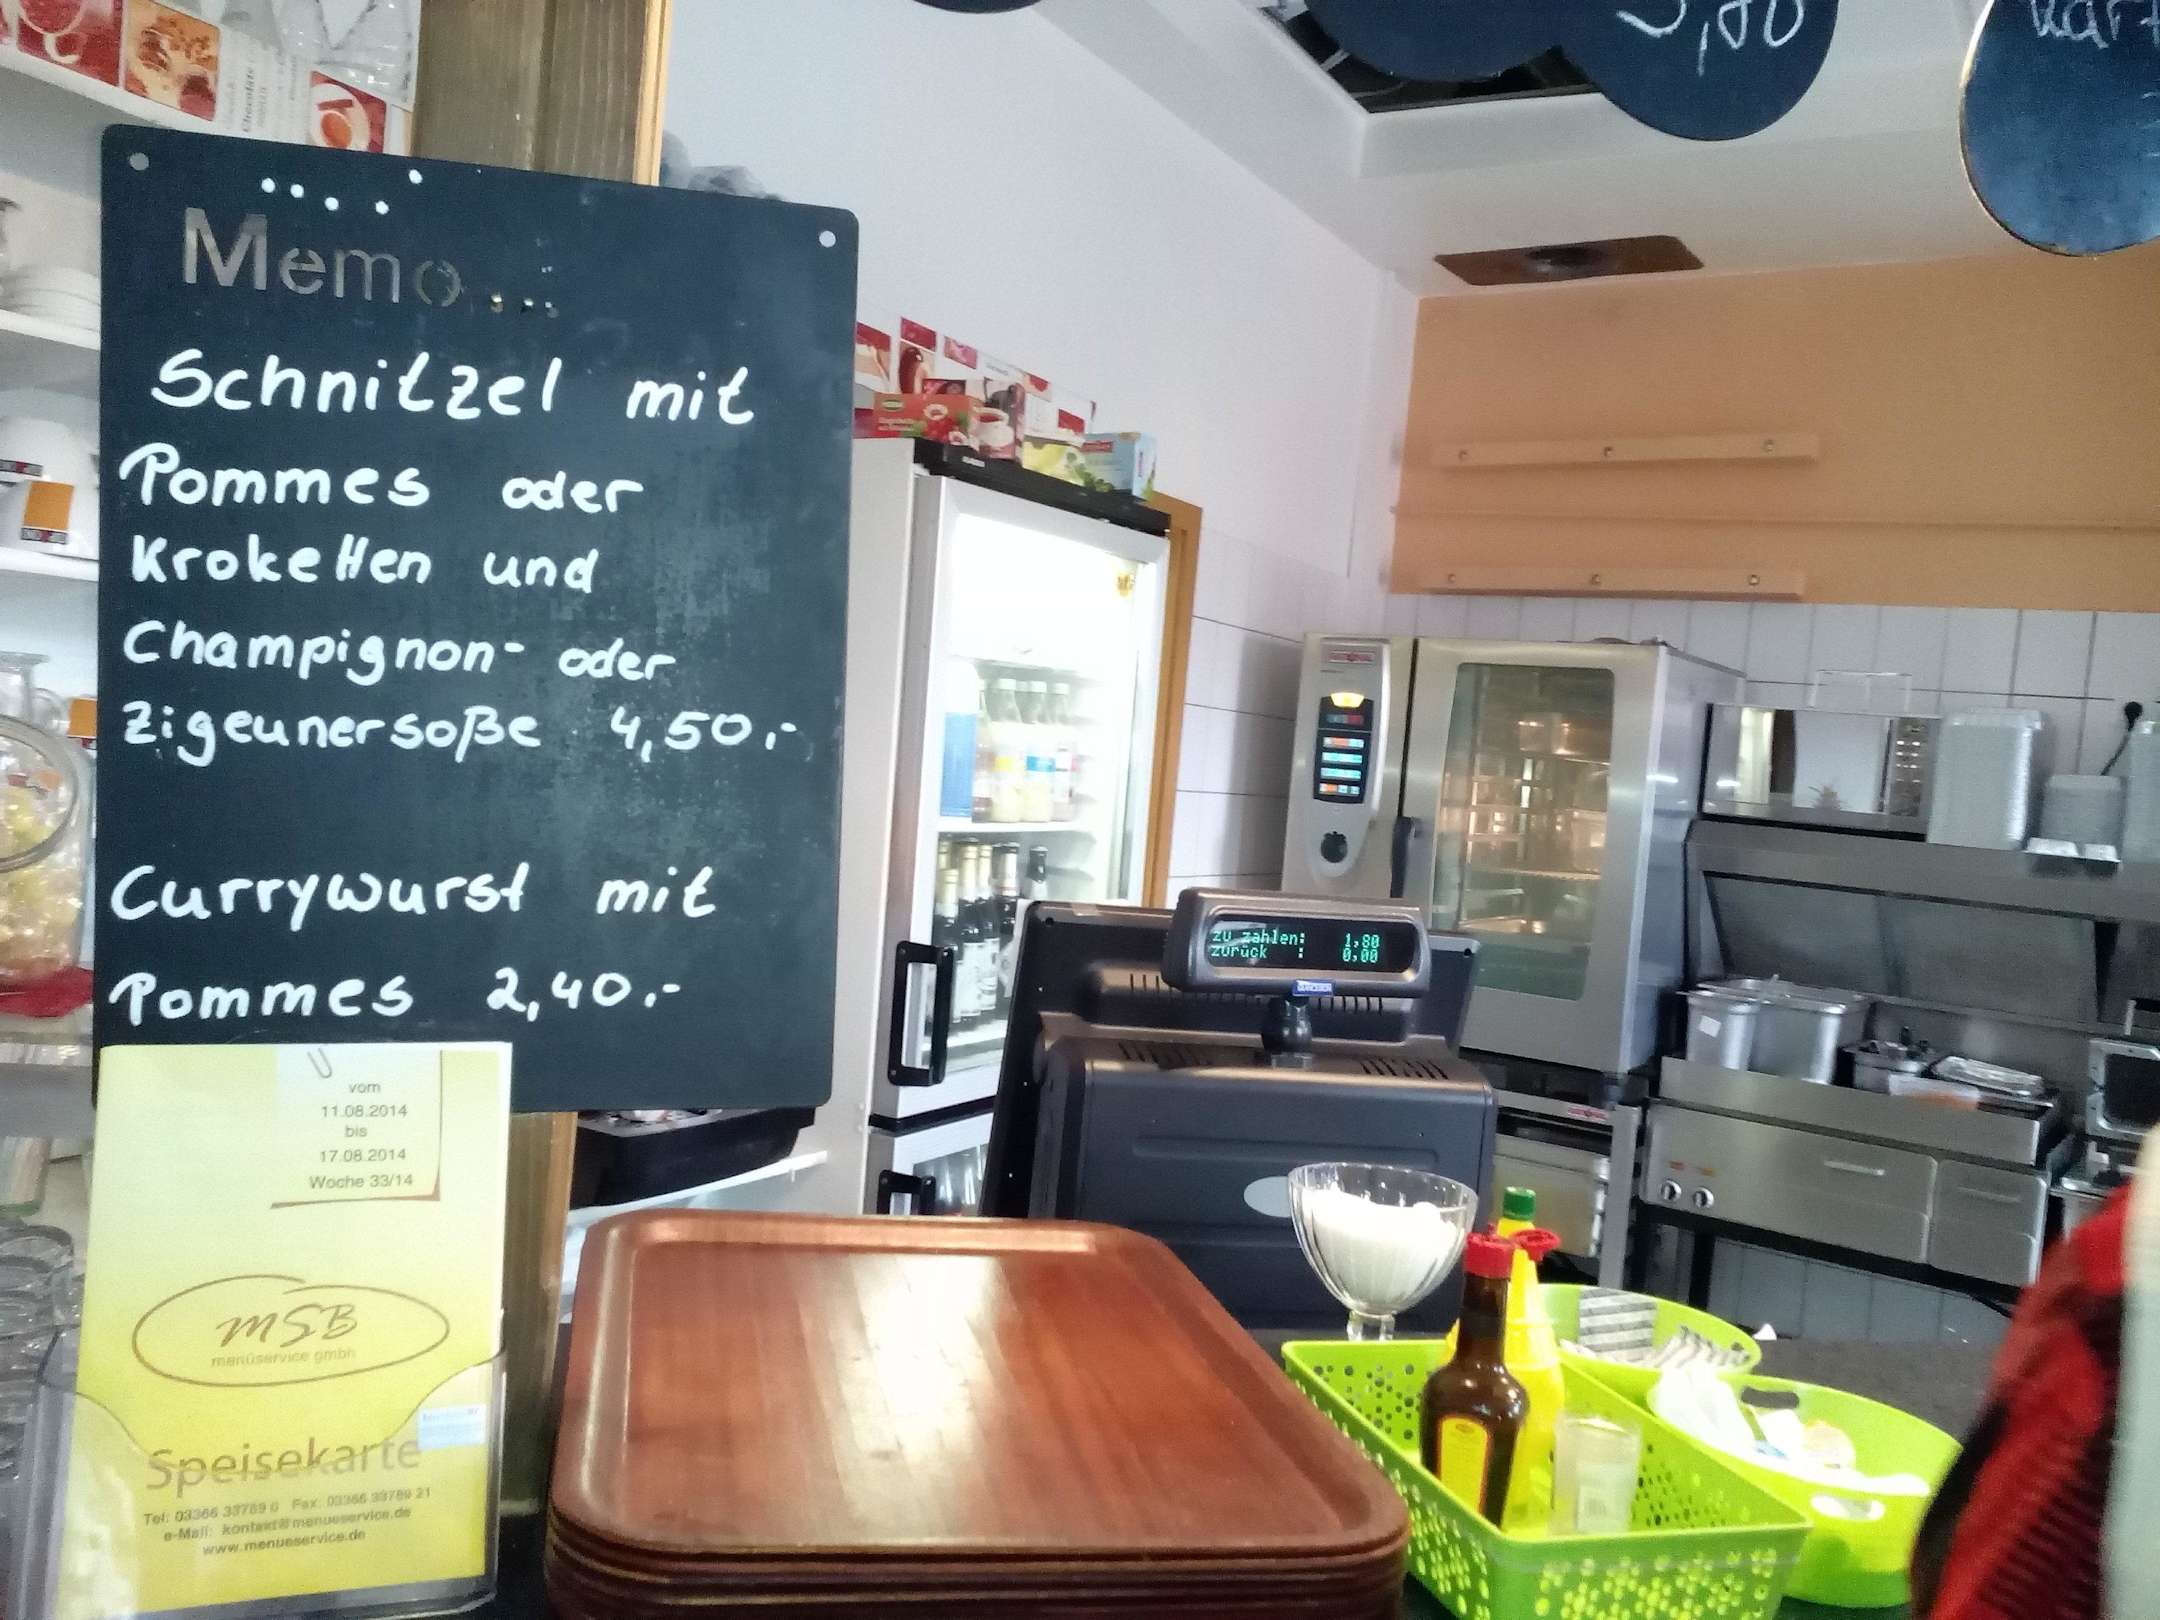 5,80
Memo...
Schnitzel mit
Pommes oder
Kroketten und
Champignon- oder
Zigeunersoße 4,50.-
Currywurst mit
Pommes 2,40.-
zu zahlen: 1,80
zurück : 0,00
vom
11.08.2014
bis
17.08.2014
Woche 33/14
MSB
menüservice gmbh
Speisekarte
Tel: 03366 33789 0 Fax: 03366 33789 21
e-Mail: kontakt@menueservice.de
www.menueservice.de